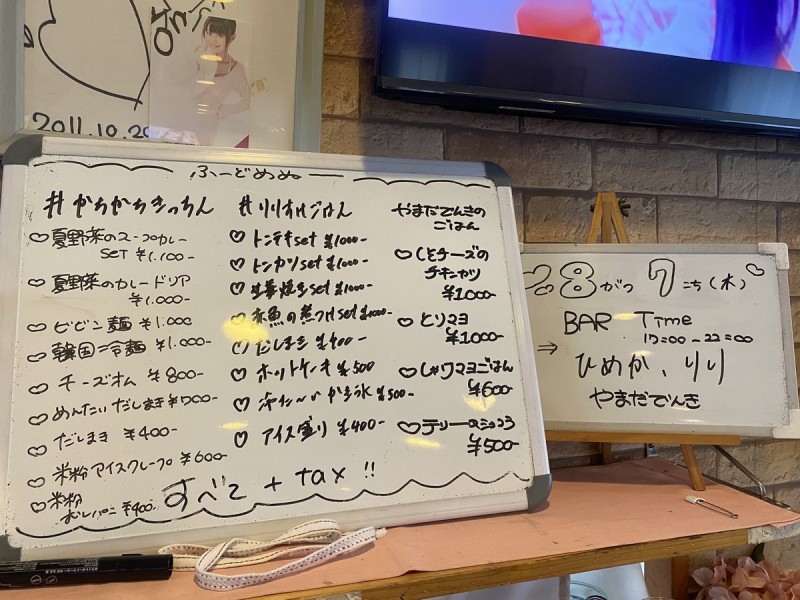 2011.10.29
ふーどめぬー
#かちかちきっちん
♡夏野菜のスープカレー
SET ¥1.100-
♡夏野菜のカレードリア
¥1.000-
♡ビビン麺 ¥1.000
♡韓国冷麺 ¥1.000-
♡チーズオム ¥800-
♡めんたいだしまき ¥700-
♡だしまき ¥400-
♡米粉アイスクレープ ¥600-
♡米粉
¥400-
#りりすけごはん
♡トンテキset ¥1000-
♡トンカツset ¥1000-
♡生姜焼きset ¥1000-
♡赤魚の煮つけset ¥1000-
♡だしまき ¥400-
♡ホットケーキ ¥500
かき氷 ¥500-
♡アイス盛り ¥400-
やまだでんきの
ごはん
♡しそチーズの
チキンカツ
¥1000-
♡とりマヨ
¥1000-
♡しゃワマヨごはん
¥600-
♡テリー
¥500-
すべて + tax !!
8がつ 7にち(木)♡
BAR Time
17:00-22:00
⇒ ひめか、りり
やまだでんき